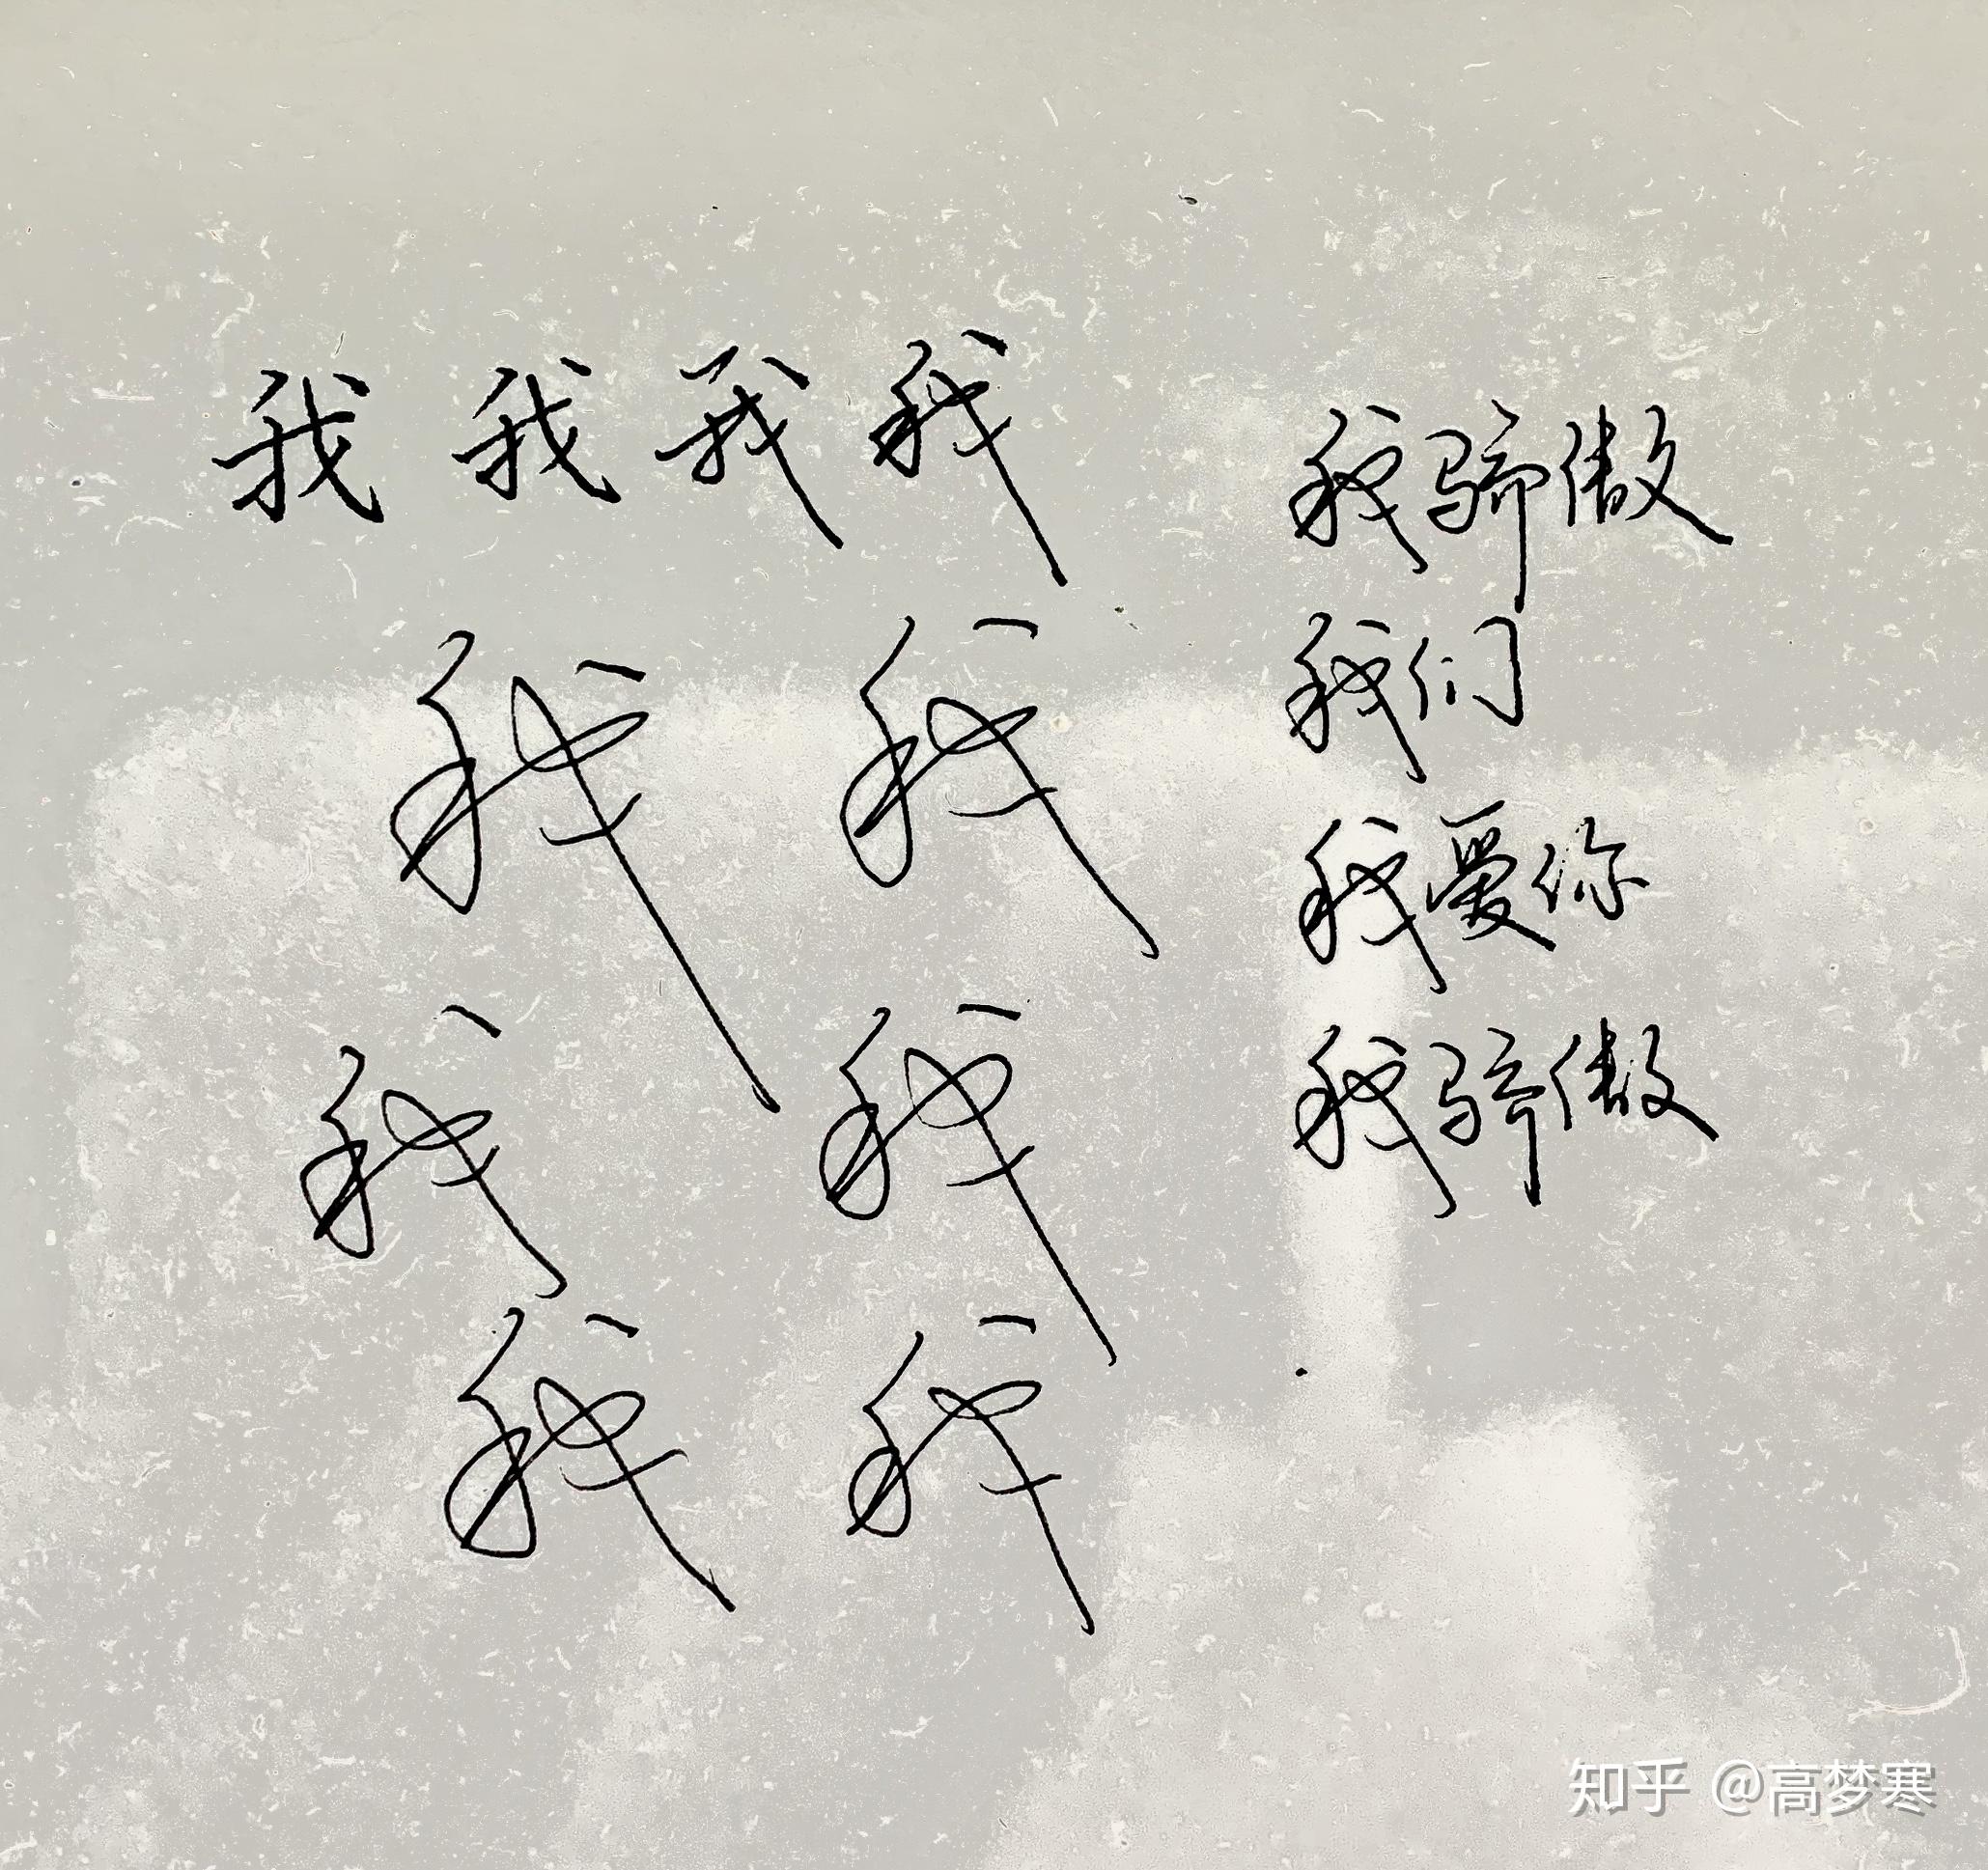 我 我 我 我
我 我
我 我
我 我
我骄傲
我们
我爱你
我骄傲
知乎 @高梦寒